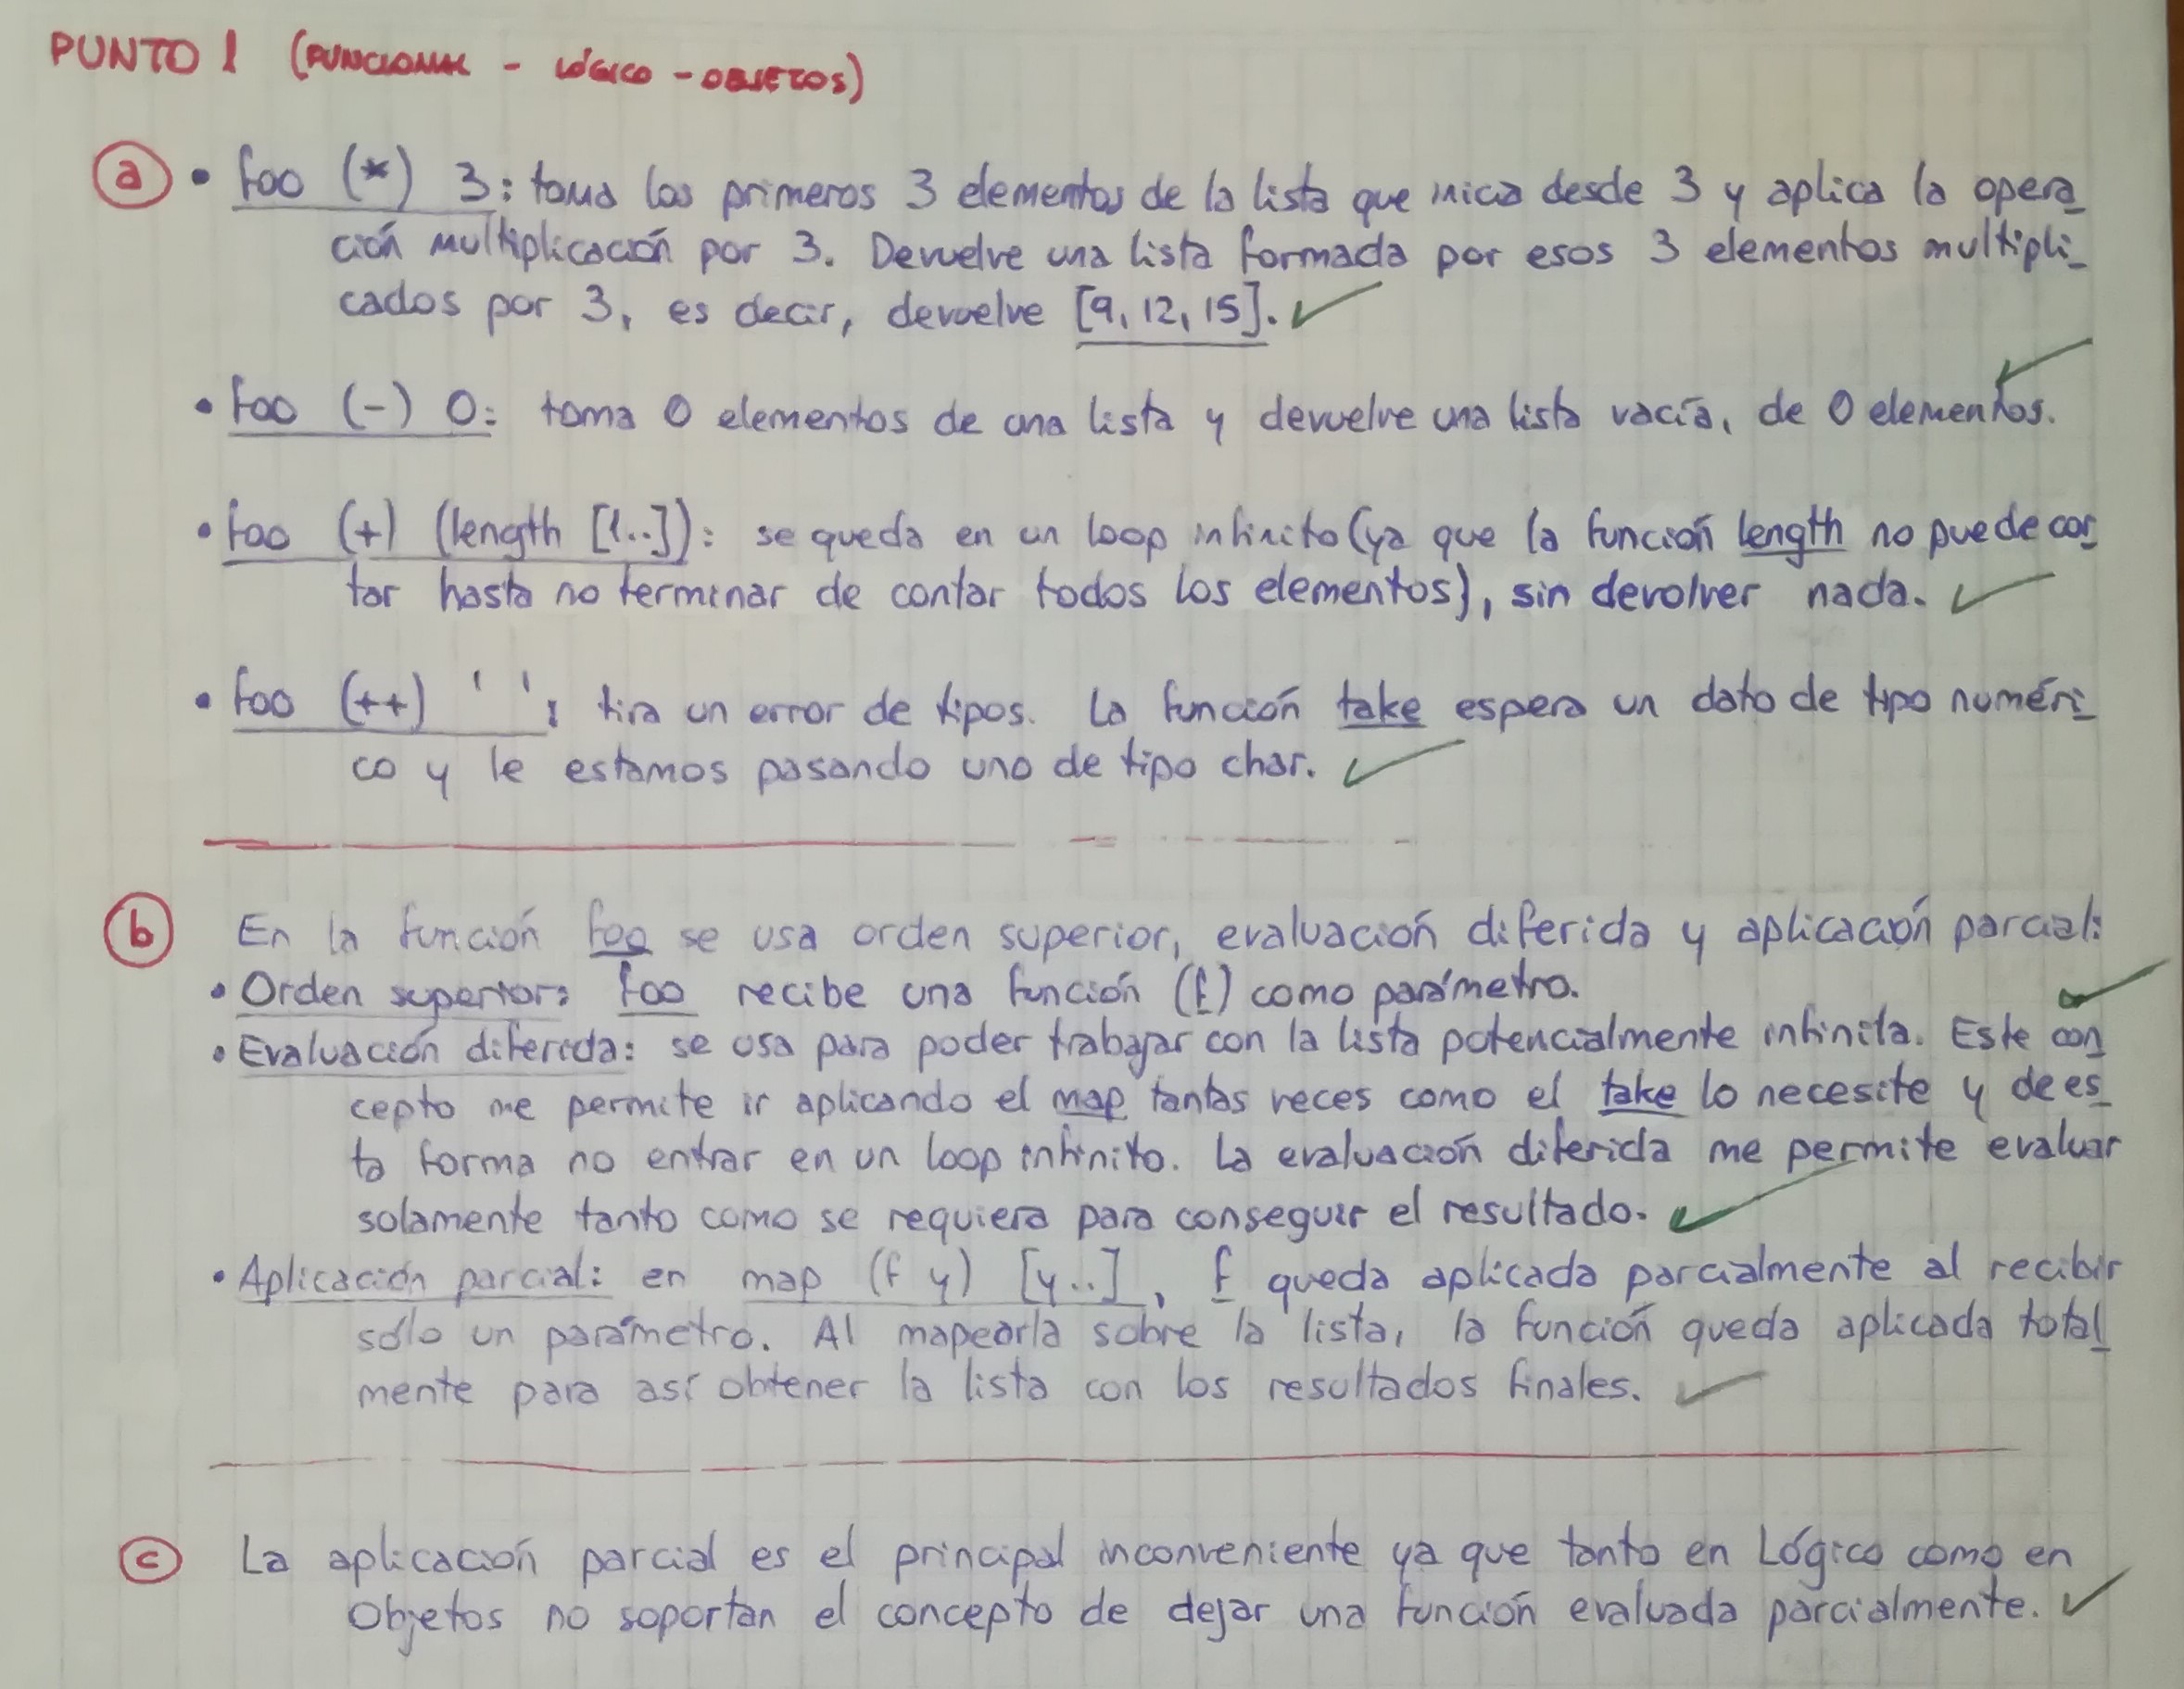 PUNTO 1 (FUNCIONAL - LÓGICO - OBJETOS)
a • foo (*) 3: toma los primeros 3 elementos de la lista que inicia desde 3 y aplica la opera_
ción multiplicación por 3. Devuelve una lista formada por esos 3 elementos multipli_
cados por 3, es decir, devuelve [9, 12, 15].
• foo (-) 0: toma 0 elementos de una lista y devuelve una lista vacía, de 0 elementos.
• foo (+) (length [1..]): se queda en un loop infinito (ya que la función length no puede cor_
tar hasta no terminar de contar todos los elementos), sin devolver nada.
• foo (++) ' ': tira un error de tipos. La función take espera un dato de tipo numéri_
co y le estamos pasando uno de tipo char.
b En la función foo se usa orden superior, evaluación diferida y aplicación parcial:
• Orden superior: foo recibe una función (f) como parámetro.
• Evaluación diferida: se usa para poder trabajar con la lista potencialmente infinita. Este con_
cepto me permite ir aplicando el map tantas veces como el take lo necesite y de es_
ta forma no entrar en un loop infinito. La evaluación diferida me permite evaluar
solamente tanto como se requiera para conseguir el resultado.
• Aplicación parcial: en map (f y) [y..], f queda aplicada parcialmente al recibir
sólo un parámetro. Al mapearla sobre la lista, la función queda aplicada total_
mente para así obtener la lista con los resultados finales.
c La aplicación parcial es el principal inconveniente ya que tanto en Lógico como en
Objetos no soportan el concepto de dejar una función evaluada parcialmente.